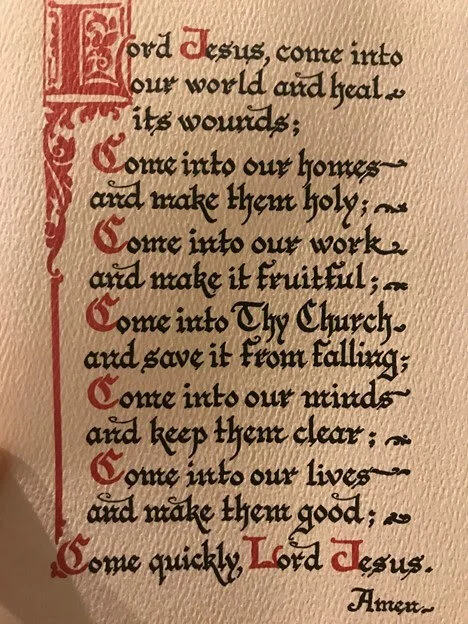 Lord Jesus, come into
our world and heal
its wounds;
Come into our homes
and make them holy;
Come into our work
and make it fruitful;
Come into Thy Church
and save it from falling;
Come into our minds
and keep them clear;
Come into our lives
and make them good;
Come quickly, Lord Jesus.
Amen